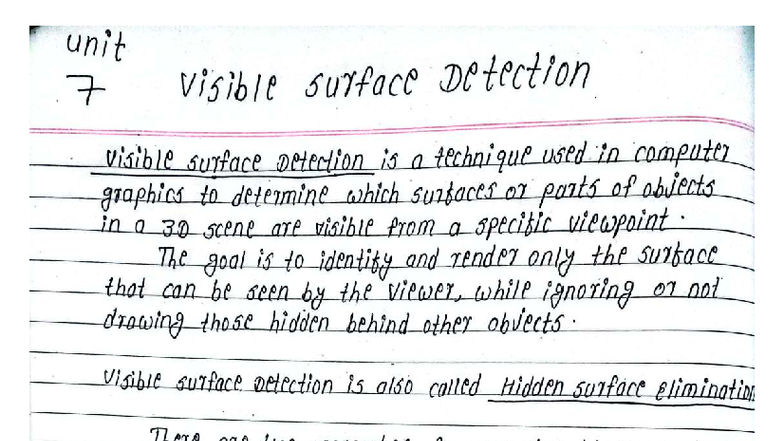 unit
7 Visible surface Detection
Visible surface Detection is a technique used in computer
graphics to determine which surfaces or parts of objects
in a 3D scene are visible from a specific viewpoint.
The goal is to identify and render only the surface
that can be seen by the viewer, while ignoring or not
drawing those hidden behind other objects.
Visible surface Detection is also called Hidden surface elimination
There are